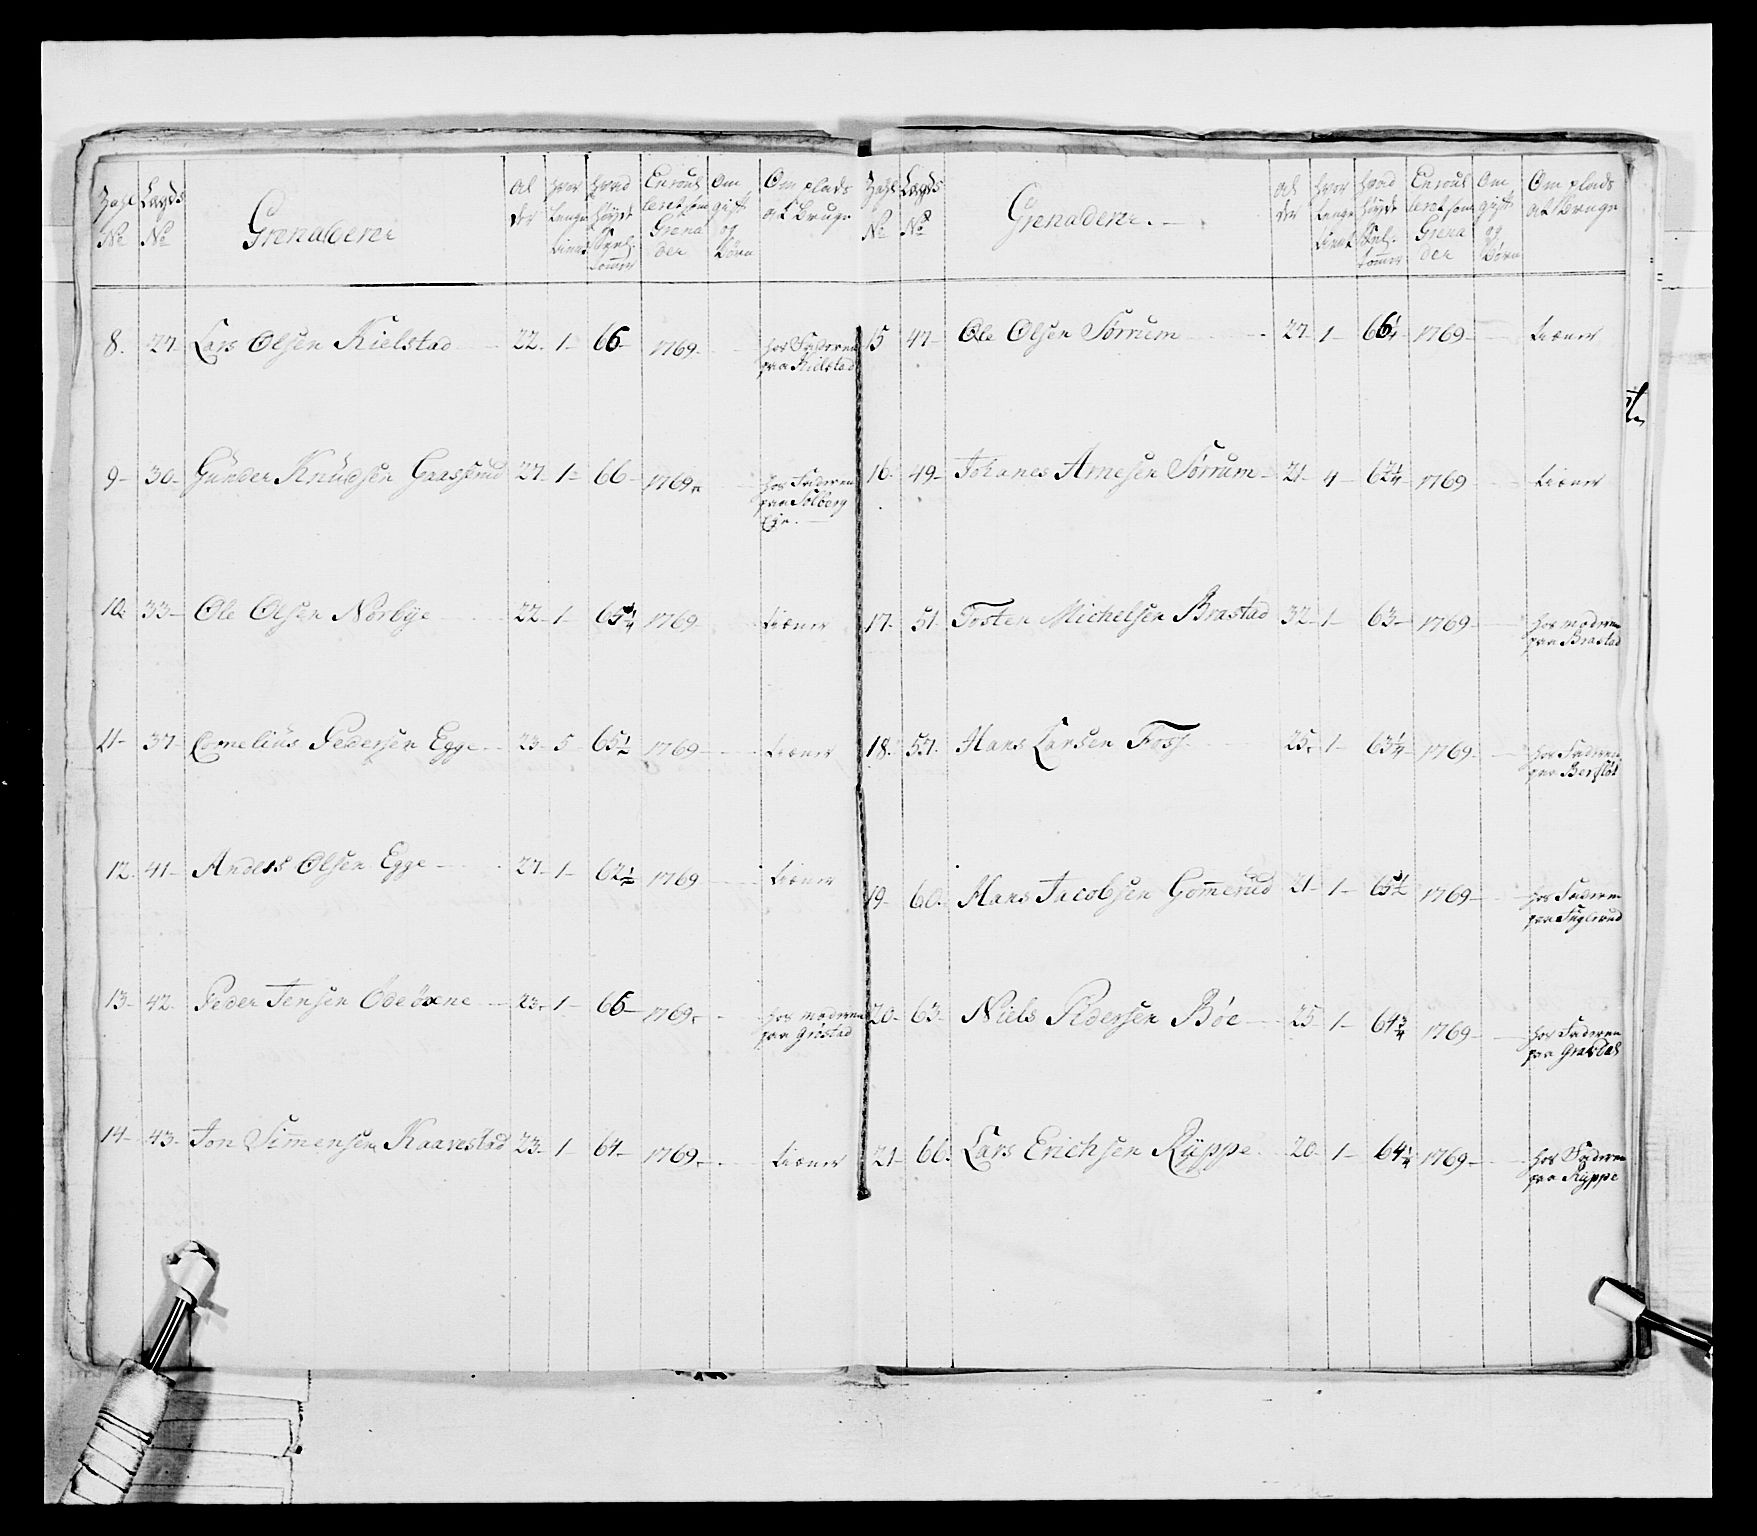 Lægds
No No
Grenaderer
Al
der
hvor
længe
tient
hvad
høyde
Tommer
Enroul
leret som
Grena
der
Om
gift
og
Børn
Om plads
at bruge
8. 27 Lars Olsen Kielstad 22. 1 66 1769 hos Faderen
paa Kielstad
9 30 Gunder Knudsen Gaasserud 27 1 66 1769 hos Faderen
paa Solberg
Eje
10 33 Ole Olsen Norbye 22 1 65 1/4 1769 tiener
11 37 Cornelius Pedersen Egge 23 5 65 1/2 1769 tiener
12. 41 Anders Olsen Egge 27 1 62 1/2 1769 tiener
13 42 Peder Jensen Ødeøxne 23 1 66 1769 hos moderen
paa Gröstad
14 43 Jon Simensen Kaarestad 23 1 64 1769 tiener
Lægds
No No
Grenaderer
Al
der
hvor
længe
tient
hvad
høyde
Tommer
Enroul
leret som
Grena
der
Om
gift
og
Børn
Om plads
at bruge
15 47 Ole Olsen Sørrum 27 1 66 1/4 1769 tiener
16 49 Johanes Arnesen Sørrum 21 4 62 1/4 1769 tiener
17 51 Tosten Michelsen Brastad 32 1 63 1769 hos moderen
paa Brastad
18 57 Hans Larsen Foss 25 1 63 1/4 1769 hos Faderen
paa
19 60 Hans Jacobsen Gomerud 21 1 65 1/2 1769 hos Faderen
paa Fuglerud
20 63 Niels Pedersen Bøe 25 1 64 3/4 1769 hos Faderen
paa
21 66 Lars Erichsen Rÿppe 20 1 64 1/4 1769 hos Faderen
paa Rÿppe